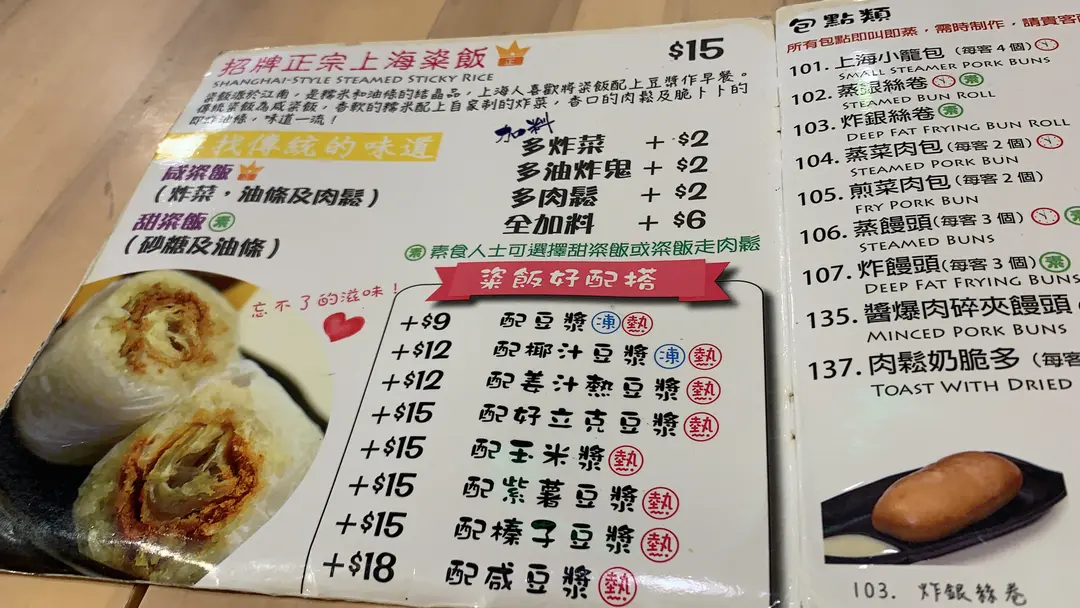 招牌正宗上海粢飯
$15
SHANGHAI-STYLE STEAMED STICKY RICE
粢飯源於江南，是糯米和油條的結晶品，上海人喜歡將粢飯配上豆漿作早餐。
傳統粢飯為咸粢飯，香軟的糯米配上自家制的炸菜，香口的肉鬆及脆卜卜的
油條，味道一流！
找傳統的味道
咸粢飯
(炸菜，油條及肉鬆)
甜粢飯 素
(砂糖及油條)
加料
多炸菜 + $2
多油炸鬼 + $2
多肉鬆 + $2
全加料 + $6
素 素食人士可選擇甜粢飯或粢飯走肉鬆
忘不了的滋味！
粢飯好配搭
+$9 配豆漿 凍 熱
+$12 配椰汁豆漿 凍 熱
+$12 配姜汁熱豆漿 熱
+$15 配好立克豆漿 熱
+$15 配玉米漿 熱
+$15 配紫薯豆漿 熱
+$15 配榛子豆漿 熱
+$18 配咸豆漿 熱
包點類
所有包點即叫即蒸，需時制作，請貴客
101. 上海小籠包 (每客4個)
SMALL STEAMER PORK BUNS
102. 蒸銀絲卷 素
STEAMED BUN ROLL
103. 炸銀絲卷 素
DEEP FAT FRYING BUN ROLL
104. 蒸菜肉包 (每客2個)
STEAMED PORK BUN
105. 煎菜肉包 (每客2個)
FRY PORK BUN
106. 蒸饅頭 (每客3個)
STEAMED BUNS
107. 炸饅頭 (每客3個) 素
DEEP FAT FRYING BUNS
135. 醬爆肉碎夾饅頭
MINCED PORK BUNS
137. 肉鬆奶脆多 (每客
TOAST WITH DRIED
103. 炸銀絲卷